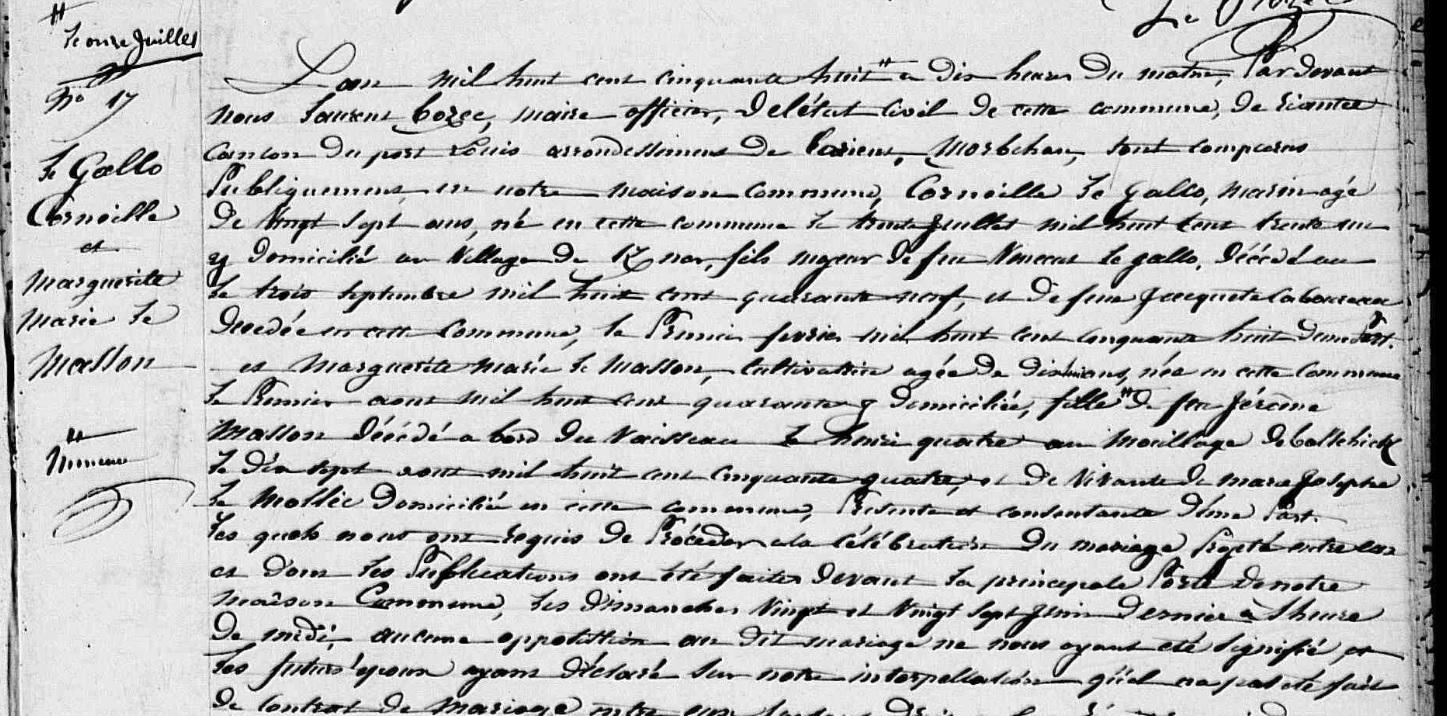 Le
le onze Juillet
N° 17
Le Gallo
Corneille
et
Marguerite
Marie Le
Masson
mineure
L'an mil huit cent cinquante huit a dix heures du matin, Pardevant
nous Laurent Cozec, maire officier, de l'état civil de cette commune, de riantec
canton du port Louis arrondissement de Lorient, Morbihan, sont comparus
Publiquement en notre maison commune, Corneille Le Gallo, marin agé
de vingt sept ans, né en cette commune le trente Juillet mil huit cent trente un
y domicilié au village de Kner, fils majeur de feu Vincent Le gallo, décédé au
le trois septembre mil huit cent quarante neuf, et de feue Jacquette
décédée en cette commune, le Premier février mil huit cent cinquante huit d'une Part.
et Marguerite Marie Le Masson, cultivatrice agée de dix huit ans, née en cette commune
le Premier aout mil huit cent quarante y domiciliée, fille de feu Jérome
Masson décédé a bord du Vaisseau le henri quatre au mouillage de baltchick
le dix sept aout mil huit cent cinquante quatre, et de vivante de marie Josephe
Le Mollec domiciliée en cette commune, Présente et consentante d'une Part.
les quels nous ont requis de Procéder a la célébration du mariage Projeté entre eux
et dont les Publications ont été faites devant la principale Porte de notre
maison Commune, les dimanches vingt et vingt sept Juin dernier a l'heure
de midi, aucune opposition au dit mariage ne nous ayant été signifié, et
les futurs époux ayant déclaré sur notre interpellation qu'il n'a pas été fait
de contrat de mariage entre eux